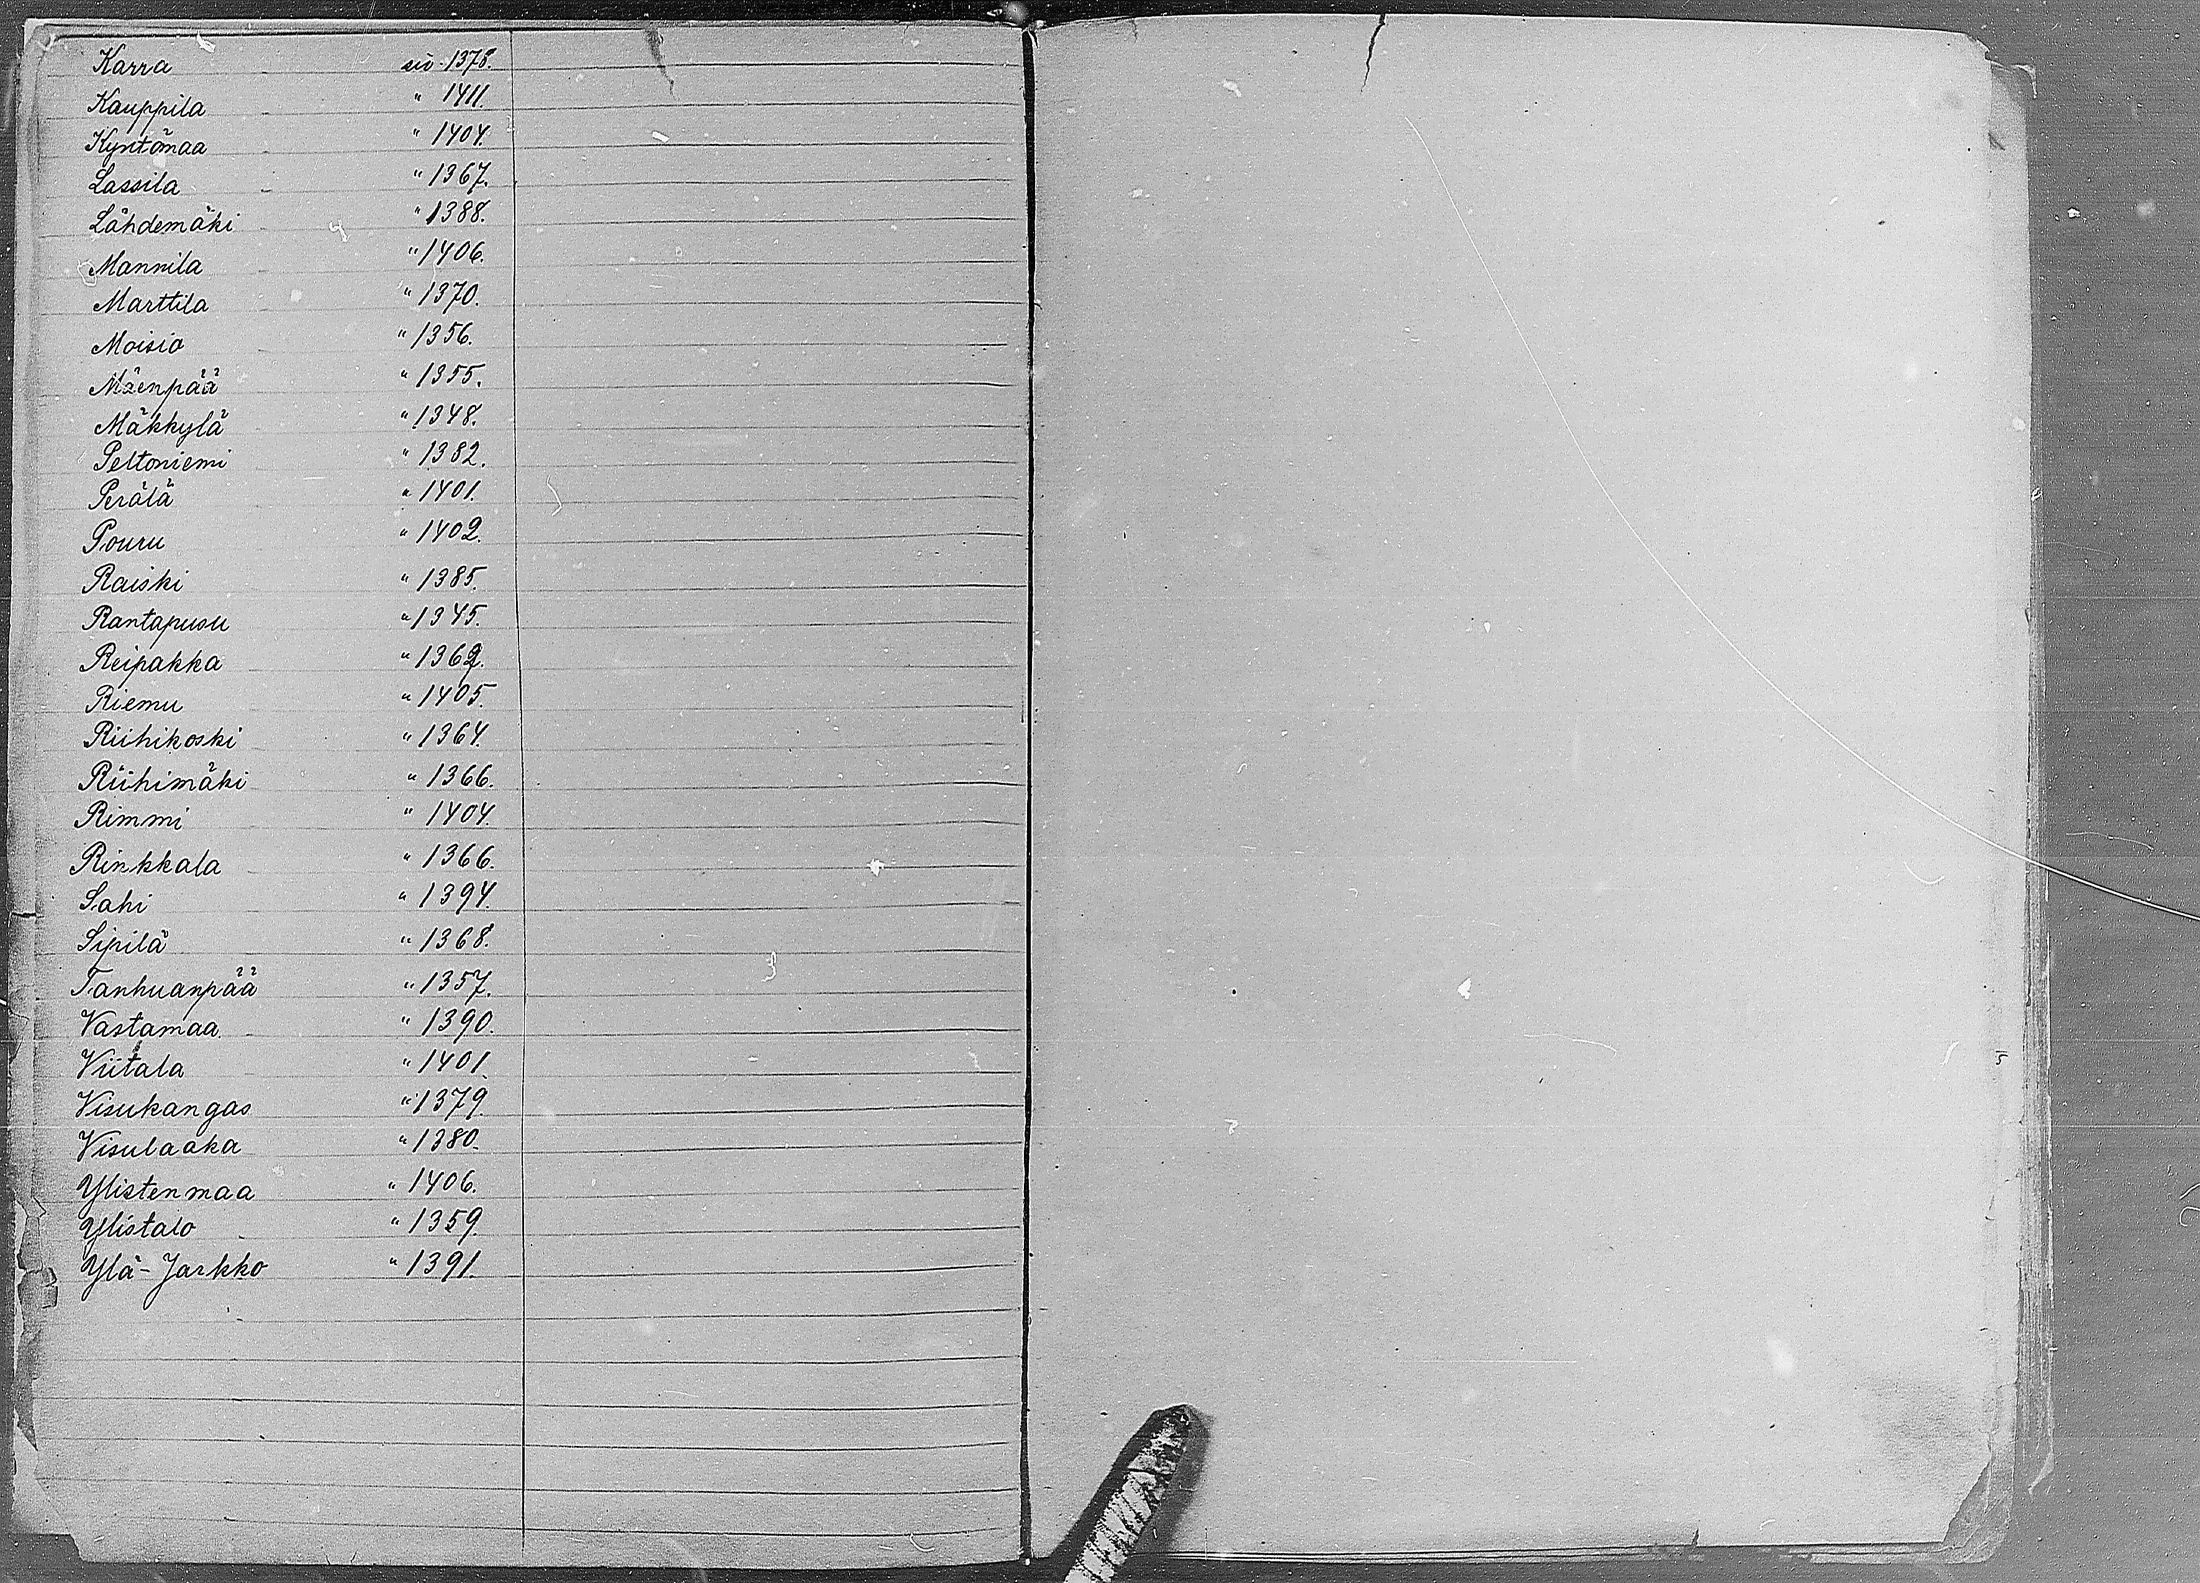 Karra siv. 1378.
Kauppila " 1411.
Kyntömaa " 1404.
Lassila " 1367.
Lähdemäki " 1388.
Mannila " 1406.
Marttila " 1370.
Moisio " 1356.
Mäenpää " 1355.
Mäkkylä " 1348.
Peltoniemi " 1382.
Perälä " 1401.
Pouru " 1402.
Raiski " 1385.
Rantapusu " 1345.
Reipakka " 1362.
Riemu " 1405.
Riihikoski " 1364.
Riihimäki " 1366.
Rimmi " 1404.
Rinkkala " 1366.
Sahi " 1394.
Sipilä " 1368.
Tanhuanpää " 1357.
Vastamaa " 1390.
Viitala " 1401.
Visukangas " 1379.
Visulaaka " 1380.
Ylistenmaa " 1406.
Ylistalo " 1359.
Ylä-Jarkko " 1391.